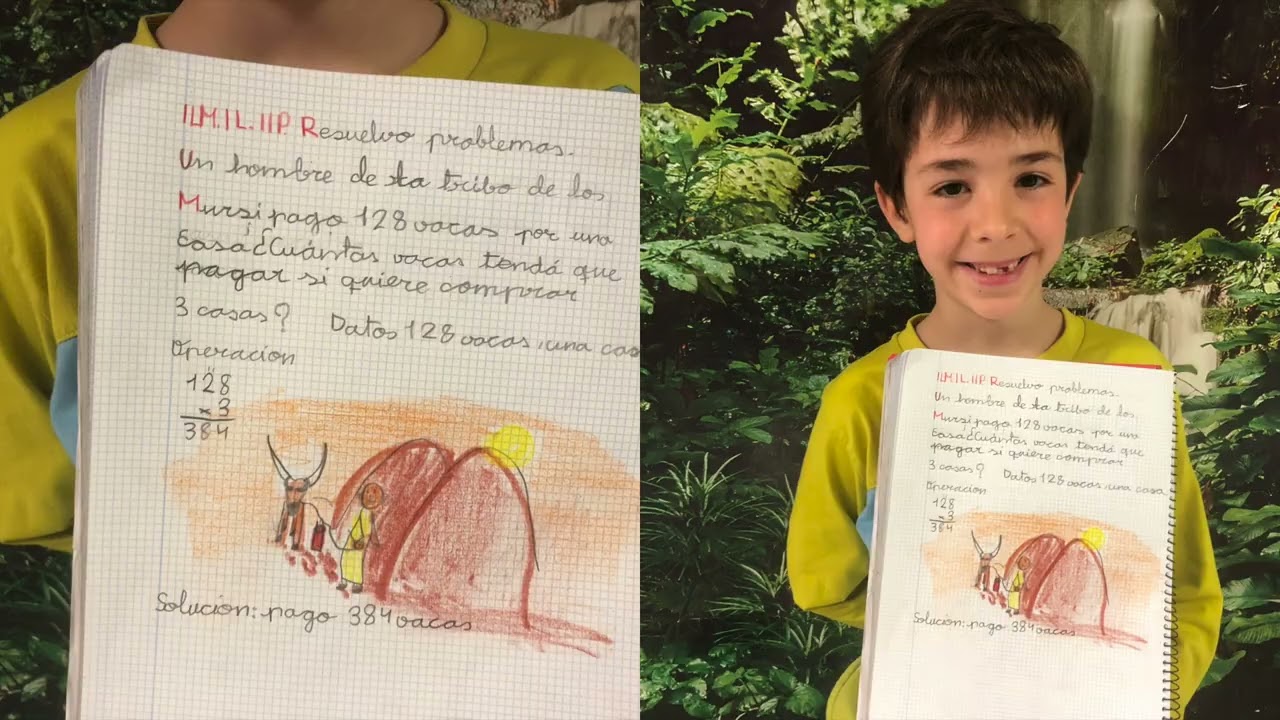 11M.1L.11P. Resuelvo problemas.
Un hombre de la tribo de los
Mursi pago 128 vacas por una
casa ¿Cuántas vacas tendá que
pagar si quiere comprar
3 casas? Datos 128 vacas, una casa
Operación
128
x 3
384
Solución: pago 384 vacas
11M.1L.11P. Resuelvo problemas.
Un hombre de la tribo de los
Mursi pago 128 vacas por una
casa ¿Cuántas vacas tendá que
pagar si quiere comprar
3 casas? Datos 128 vacas, una casa
Operación
128
x 3
384
Solución: pago 384 vacas